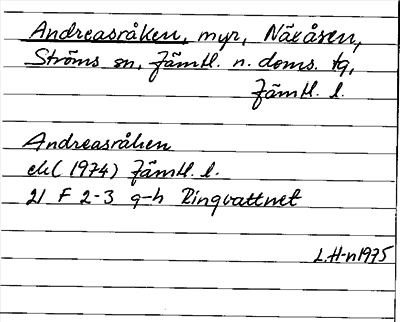 Andreasråken, myr, Näxåsen,
Ströms sn, Jämtl. n. doms. tg,
Jämtl. l.
Andreasråken
ek (1974) Jämtl. l.
21 F 2-3 g-h Ringvattnet
L.H-n 1975